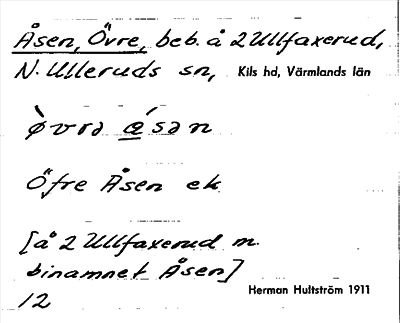 Åsen, Övre, beb. å 2 Ullfaxerud,
N. Ulleruds sn, Kils hd, Värmlands län
ø̀vrə ǻsən
Öfre Åsen ek
[å 2 Ullfaxerud m.
binamnet Åsen]
12 Herman Hultström 1911